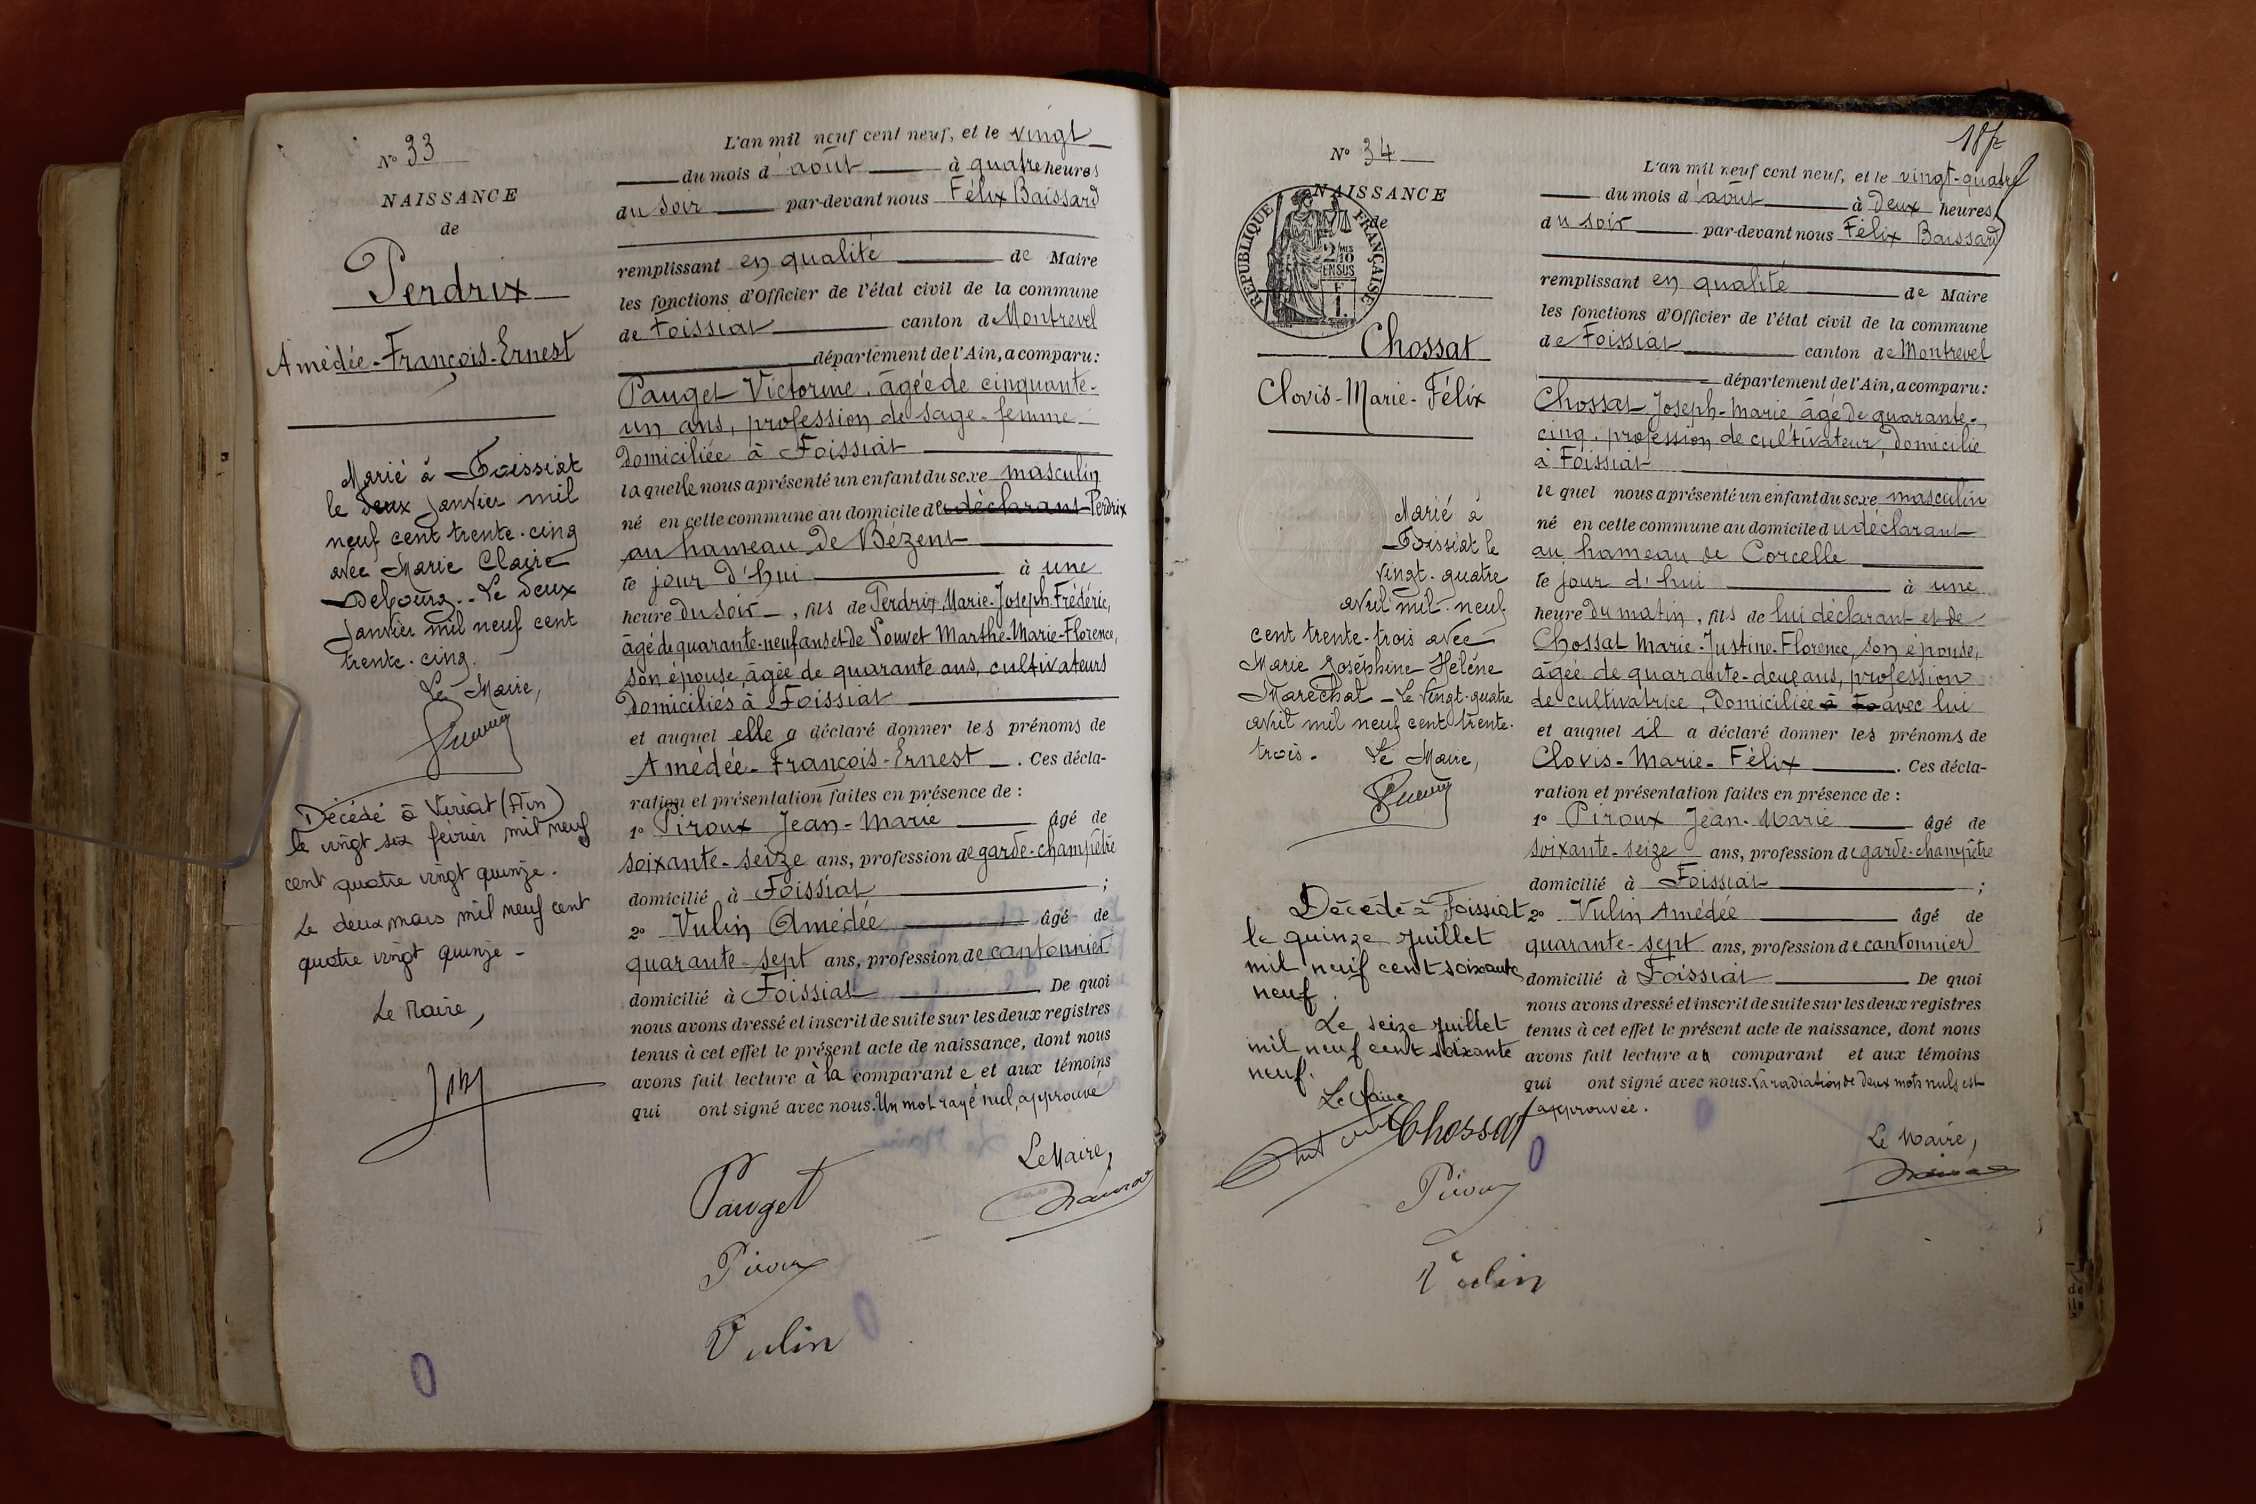 N° 33
NAISSANCE
de
Perdrix
Amédée-François-Ernest
Marié à Foissiat
le deux janvier mil
neuf cent trente-cinq
avec Marie Claire
Le deux
janvier mil neuf cent
trente-cinq.
Le Maire,
Décédé à Viriat (Ain)
le vingt six février mil neuf
cent quatre vingt quinze.
Le deux mars mil neuf cent
quatre vingt quinze -
Le Maire,
L'an mil neuf cent neuf, et le vingt
du mois d'août à quatre heures
du soir par-devant nous Félix Baissard
remplissant en qualité de Maire
les fonctions d'Officier de l'état civil de la commune
de Foissiat canton de Montrevel
département de l'Ain, a comparu:
Pauget Victorine, âgée de cinquante-
un ans, profession de sage-femme
domiciliée à Foissiat
laquelle nous a présenté un enfant du sexe masculin
né en cette commune au domicile de déclarant Perdrix
au hameau de Bézent
le jour d'hui à une
heure du soir, fils de Perdrix Marie-Joseph-Frédéric,
âgé de quarante-neuf ans et de Louvet Marthe-Marie-Florence,
son épouse, âgée de quarante ans, cultivateurs
domiciliés à Foissiat
et auquel elle a déclaré donner les prénoms de
Amédée-François-Ernest. Ces décla-
ration et présentation faites en présence de :
1° Piroux Jean-Marie âgé de
soixante-seize ans, profession de garde-champêtre
domicilié à Foissiat ;
2° Vulin Amédée âgé de
quarante-sept ans, profession de cantonnier
domicilié à Foissiat De quoi
nous avons dressé et inscrit de suite sur les deux registres
tenus à cet effet le présent acte de naissance, dont nous
avons fait lecture à la comparante et aux témoins
qui ont signé avec nous. Un mot rayé nul, approuvé
Le Maire,
Pauget
Piroux
Vulin
N° 34
NAISSANCE
de
REPUBLIQUE FRANÇAISE
2/10
EN SUS
1 F
Chossat
Clovis-Marie-Félix
Marié à
Foissiat le
vingt-quatre
avril mil-neuf
cent trente-trois avec
Marie Joséphine Hélène
Maréchal - Le vingt-quatre
avril mil neuf cent trente-
trois. Le Maire,
Décédé à Foissiat
le quinze juillet
mil neuf cent soixante
neuf.
Le seize juillet
mil neuf cent soixante
neuf.
Le Maire
L'an mil neuf cent neuf, et le vingt-quatre
du mois d'août à deux heures
du soir par-devant nous Félix Baissard
remplissant en qualité de Maire
les fonctions d'Officier de l'état civil de la commune
de Foissiat canton de Montrevel
département de l'Ain, a comparu:
Chossat Joseph-Marie âgé de quarante-
cinq, profession de cultivateur, domicilié
à Foissiat
lequel nous a présenté un enfant du sexe masculin
né en cette commune au domicile du déclarant
au hameau de Corcelle
le jour d'hui à une
heure du matin, fils de lui déclarant et de
Chossat Marie-Justine-Florence, son épouse,
âgée de quarante-deux ans, profession
de cultivatrice, domiciliée à Fo avec lui
et auquel il a déclaré donner les prénoms de
Clovis-Marie-Félix. Ces décla-
ration et présentation faites en présence de :
1° Piroux Jean-Marie âgé de
soixante-seize ans, profession de garde-champêtre
domicilié à Foissiat ;
2° Vulin Amédée âgé de
quarante-sept ans, profession de cantonnier
domicilié à Foissiat De quoi
nous avons dressé et inscrit de suite sur les deux registres
tenus à cet effet le présent acte de naissance, dont nous
avons fait lecture au comparant et aux témoins
qui ont signé avec nous. La radiation de deux mots nuls est
approuvée.
Le Maire,
Chossat
Piroux
Vulin